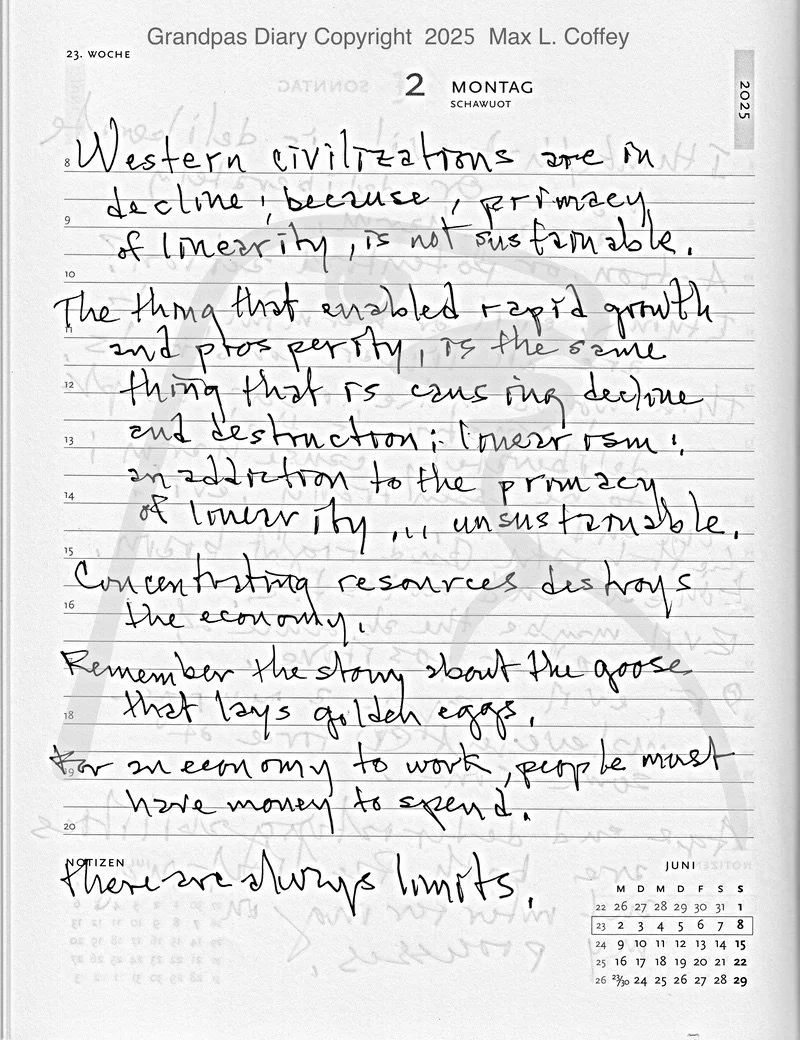 Grandpas Diary Copyright 2025 Max L. Coffey
23. WOCHE
2 MONTAG
SCHAWUOT
2025
8 Western civilizations are in
decline, because, primacy
9 of linearity, is not sustainable.
10
The thing that enabled rapid growth
11 and prosperity, is the same
12 thing that is causing decline
13 and destruction; linearism;
an addiction to the primacy
14 of linearity ,,, unsustainable.
15
Concentrating resources destroys
16 the economy.
Remember the story about the goose
18 that lays golden eggs.
19 For an economy to work, people must
have money to spend.
20
NOTIZEN
There are always limits.
JUNI
M D M D F S S
22 26 27 28 29 30 31 1
23 2 3 4 5 6 7 8
24 9 10 11 12 13 14 15
25 16 17 18 19 20 21 22
26 23/30 24 25 26 27 28 29